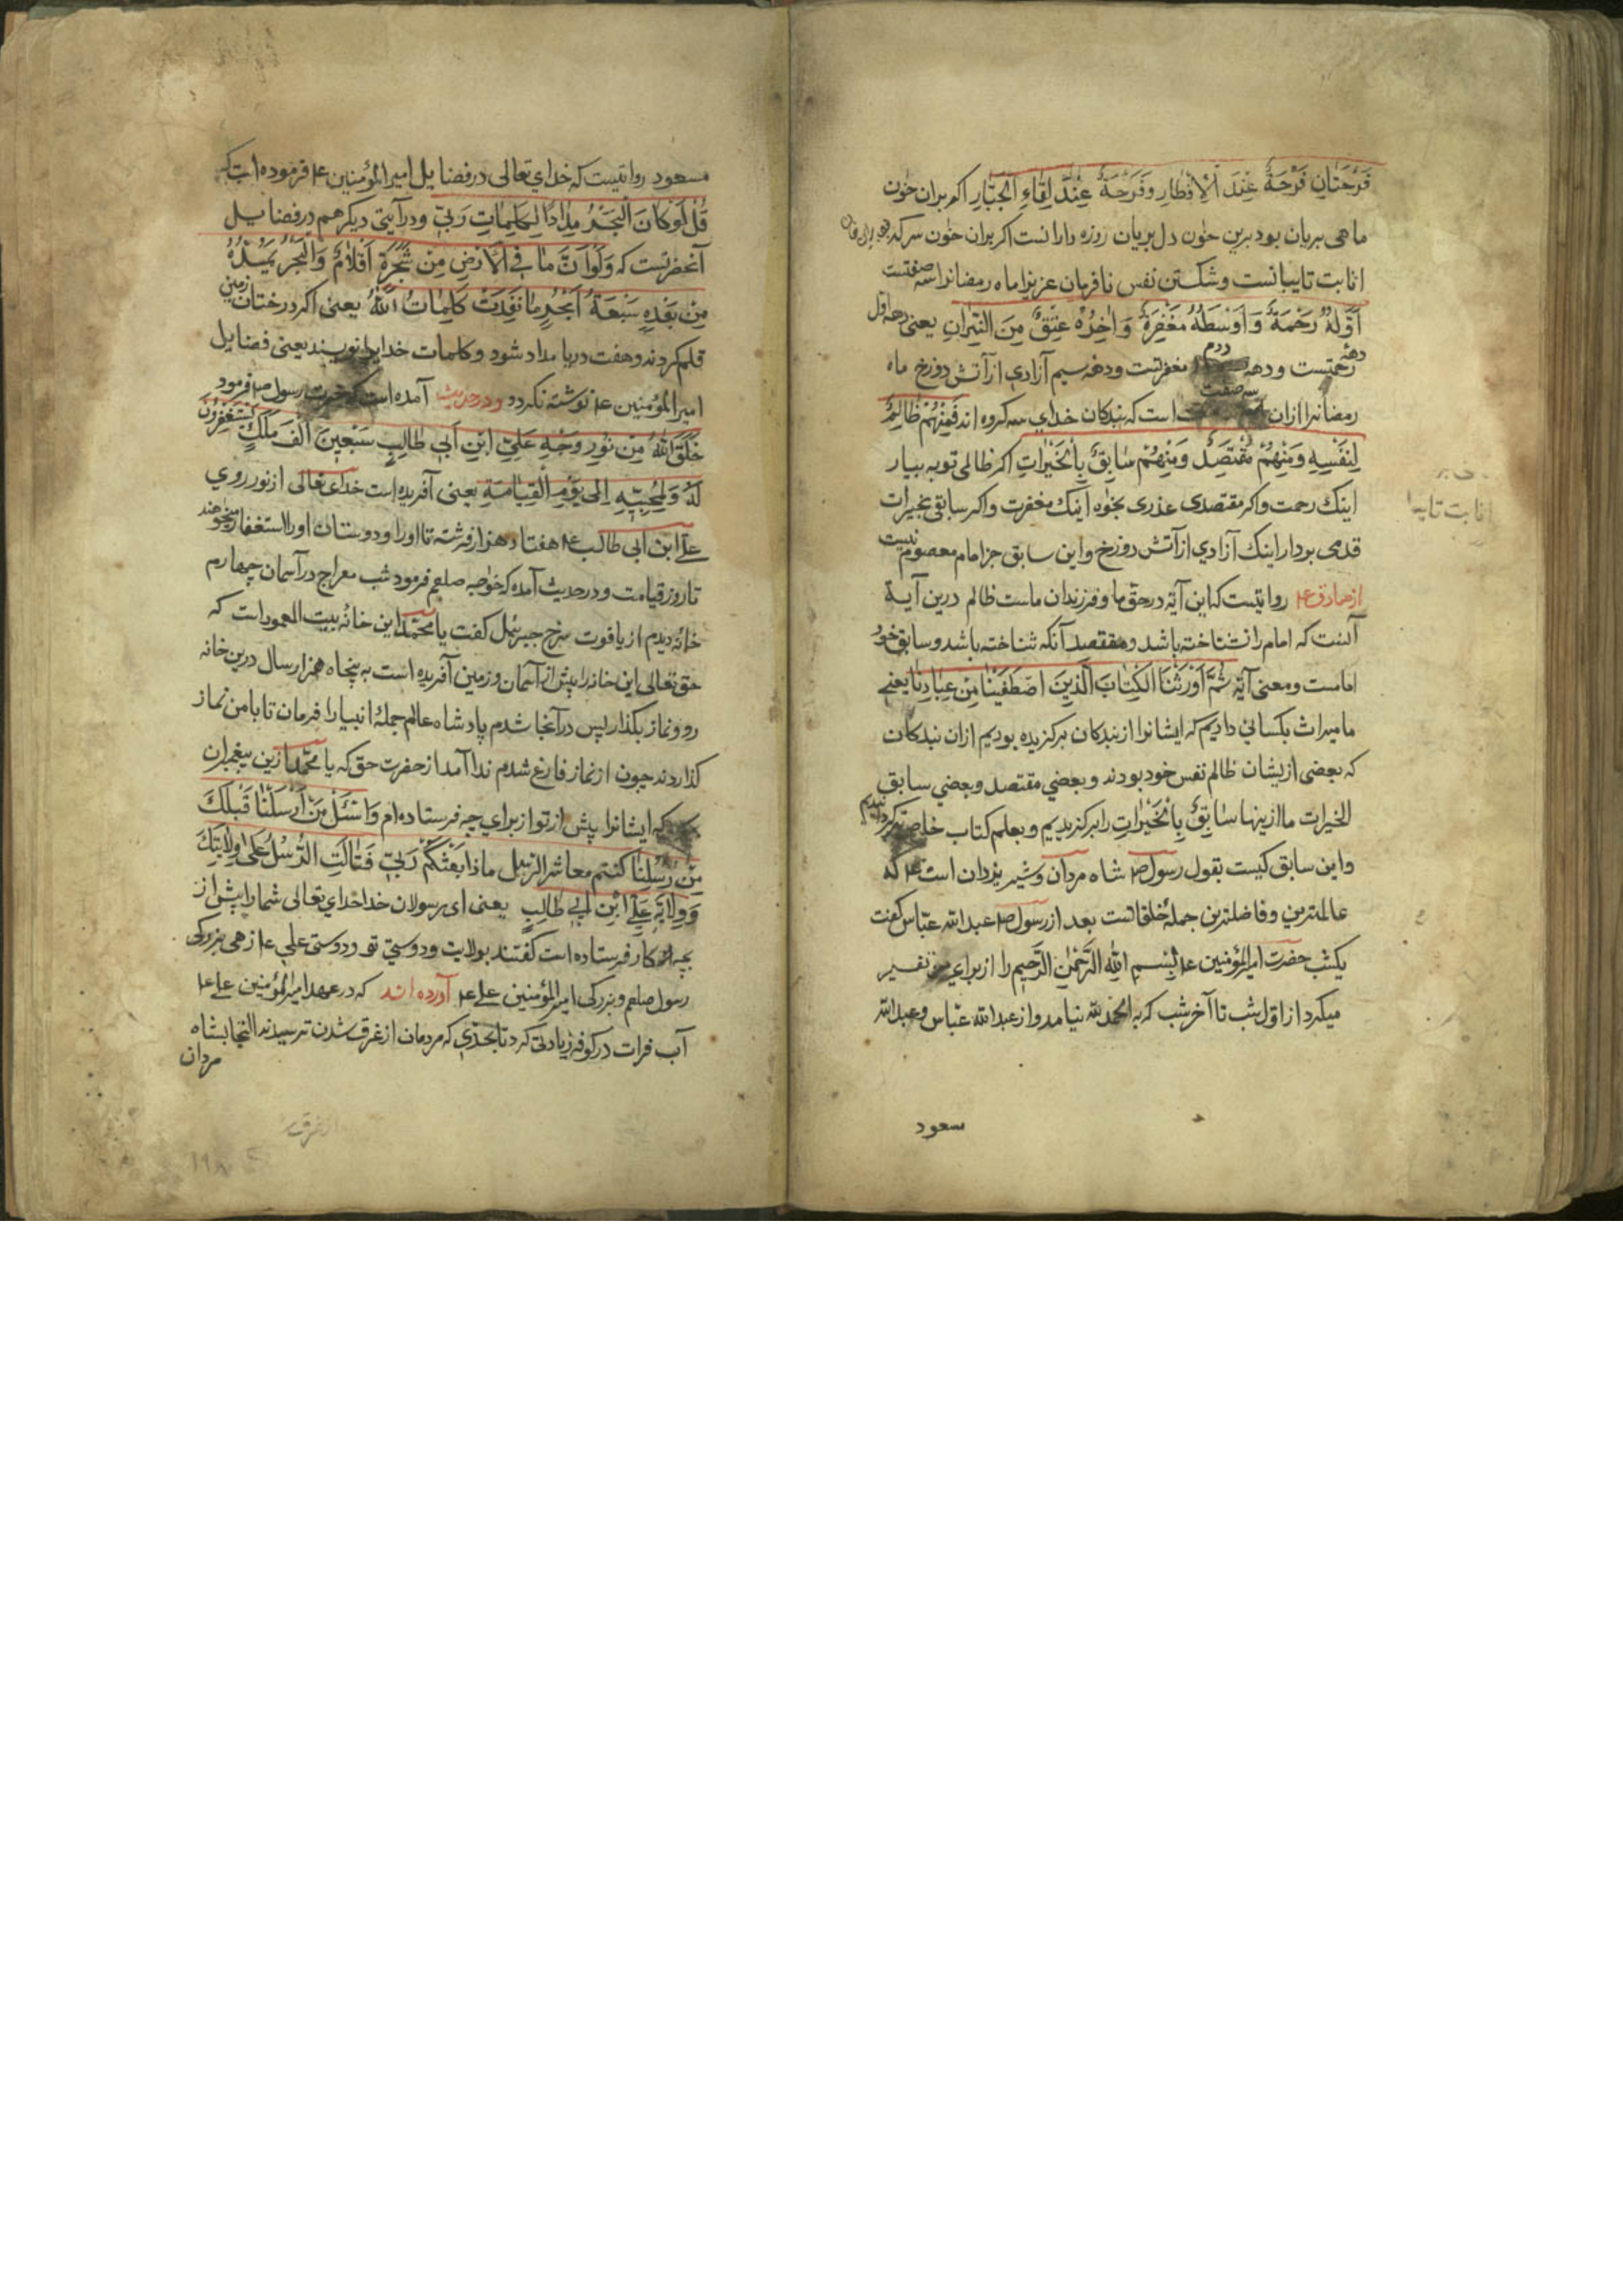 فَرْحَتَانِ فَرْحَةٌ عِنْدَ الْاِفْطَارِ وَفَرْحَةٌ عِنْدَ لِقَاءِ الْجَبَّارِ اکر بران خون
ماهی بریان بود برین خون دل بریان روزه دارانست اکر بران خون سرکه
انابت تایبانست وشکستن نفس نافرمان عزیز اماه رمضانرا سه صفتست
اَوَّلُهُ رَحْمَةٌ وَاَوْسَطُهُ مَغْفِرَةٌ وَاٰخِرُهُ عِتْقٌ مِنَ النِّیرَانِ یعنی دههٔ اول
رحمتست ودههٔ دوم مغفرتست ودهه سیم آزادی از آتش دوزخ ماه
رمضانرا ازان سه صفت است که بندکان خدای سه کروه اند فَمِنْهُمْ ظَالِمٌ
لِنَفْسِهِ وَمِنْهُمْ مُقْتَصِدٌ وَمِنْهُمْ سَابِقٌ بِالْخَیْرَاتِ اکر ظالمی توبه بیار
اینک رحمت واکر مقتصدی عذری بخواه اینک مغفرت واکر سابقی بخیرات
قدمی بردار اینک آزادی از آتش دوزخ واین سابق جز امام معصوم نیست
از صادق ع روایتست که این آیة درحق ما وفرزندان ماست ظالم درین آیة
آنست که امام را نشناخته باشد ومقتصد آنکه شناخته باشد وسابق خود
امامست ومعنی آیة ثُمَّ اَوْرَثْنَا الْکِتَابَ الَّذِینَ اصْطَفَیْنَا مِنْ عِبَادِنَا یعنی
ما میراث بکسانی دادیم که ایشانرا از بندکان برکزیده بودیم ازان بندکان
که بعضی ازیشان ظالم نفس خود بودند وبعضی مقتصد وبعضی سابق
الخیرات ما ازینها سَابِقٌ بِالْخَیْرَاتِ را برکزیدیم وبعلم کتاب خاص کردانیدیم
واین سابق کیست بقول رسول ص شاه مردان وشیر یزدان است ع که
عالمترین وفاضلترین جملهٔ خلقانست بعد از رسول ص عبدالله عباس کفت
یکشب حضرت امیرالمؤمنین ع بِسْمِ اللهِ الرَّحْمٰنِ الرَّحِیمِ را از برای من تفسیر
میکرد از اول شب تا آخر شب که به الحمدلله نیامد واز عبدالله عباس وعبدالله
سعود
انابت تایبا
مسعود روایتست که خدای تعالی در فضایل امیرالمؤمنین ع فرموده است که
قُلْ لَوْ کَانَ الْبَحْرُ مِدَادًا لِکَلِمَاتِ رَبِّی ودرآیتی دیکر هم در فضایل
آنحضرتست که وَلَوْ اَنَّ مَا فِی الْاَرْضِ مِنْ شَجَرَةٍ اَقْلَامٌ وَالْبَحْرُ یَمُدُّهُ
مِنْ بَعْدِهِ سَبْعَةُ اَبْحُرٍ مَا نَفِدَتْ کَلِمَاتُ اللهِ یعنی اکر درختان زمین
قلم کردند وهفت دریا مداد شود وکلمات خدایرا نویسند یعنی فضایل
امیرالمؤمنین ع نوشته نکردد ودرحدیث آمده است که حضرت رسول ص فرمود
خَلَقَ اللهُ مِنْ نُورِ وَجْهِ عَلِیِّ ابْنِ اَبِی طَالِبٍ سَبْعِینَ اَلْفَ مَلَکٍ یَسْتَغْفِرُونَ
لَهُ وَلِمُحِبِّیهِ اِلٰی یَوْمِ الْقِیَامَةِ یعنی آفریده است خدای تعالی از نور روی
علی ابن ابی طالب ع هفتاد هزار فرشته تا اورا ودوستان اورا استغفار میخواهند
تا روز قیامت ودرحدیث آمده که خواجه صلعم فرمود شب معراج در آسمان چهارم
خانهٔ دیدم از یاقوت سرخ جبرئیل کفت یا محمد این خانهٔ بیت المعمور است که
حق تعالی این خانه را پیش از آسمان وزمین آفریده است به پنجاه هزار سال درین خانه
رو ونماز بکذار پس درآنجا شدم پادشاه عالم جملهٔ انبیارا فرمان تا بامن نماز
کذاردند چون از نماز فارغ شدم ندا آمد از حضرت حق که یا محمد ازین پیغمبران
که ایشانرا پیش از تو از برای چه فرستاده ام وَاسْئَلْ مَنْ اَرْسَلْنَا قَبْلَکَ
مِنْ رُسُلِنَا کنتم معاشر الرسل ماذا بَعَثَکُمْ رَبِّی فَقَالَتِ الرُّسُلُ عَلٰی وِلَایَتِکَ
وَوِلَایَةِ عَلِیِّ ابْنِ اَبِی طَالِبٍ یعنی ای رسولان خدا خدای تعالی شمارا پیش از
بچه کار فرستاده است کفتند بولایت ودوستی تو ودوستی علی ع زهی بزرکی
رسول صلعم وبزرکی امیرالمؤمنین علی ع آورده اند که درعهد امیرالمؤمنین علی ع
آب فرات درکوفه زیادتی کرد تا بحدی که مردمان از غرق شدن ترسیدند التجا بشاه
مردان
۱۹۸